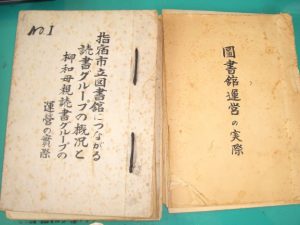 NO.1
指宿市立図書館につながる
読書グループの概况と
柳和母親読書グループの
運営の實際
圖書館運営の実際